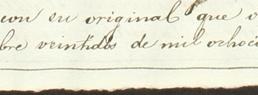 con su original que o
bre veintidos de mil ochoci